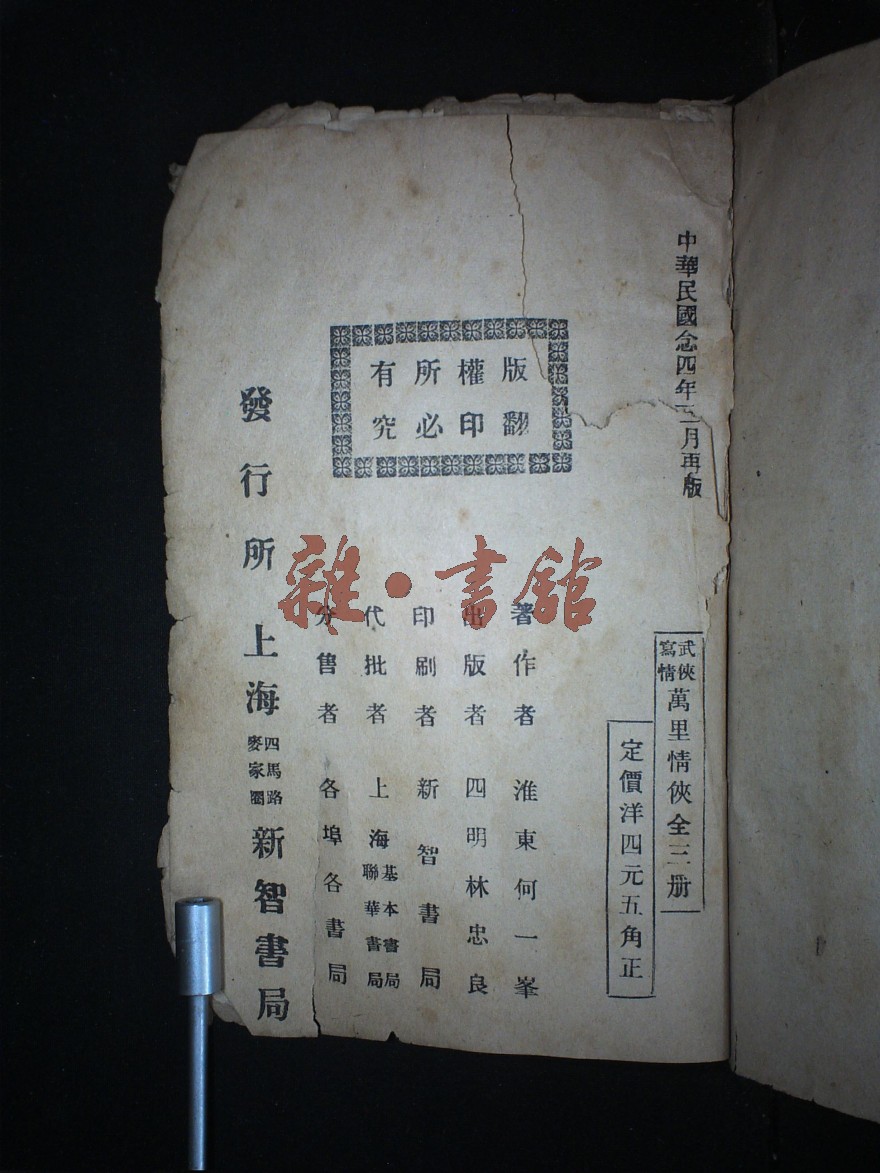 中華民國念四年十一月再版
武俠寫情 萬里情俠全三册
定價洋四元五角正
版權所有
翻印必究
著作者 淮東何一峯
出版者 四明林忠良
印刷者 新智書局
代批者 上海基本書局聯華書局
分售者 各埠各書局
發行所 上海四馬路麥家圈新智書局
雜·書館